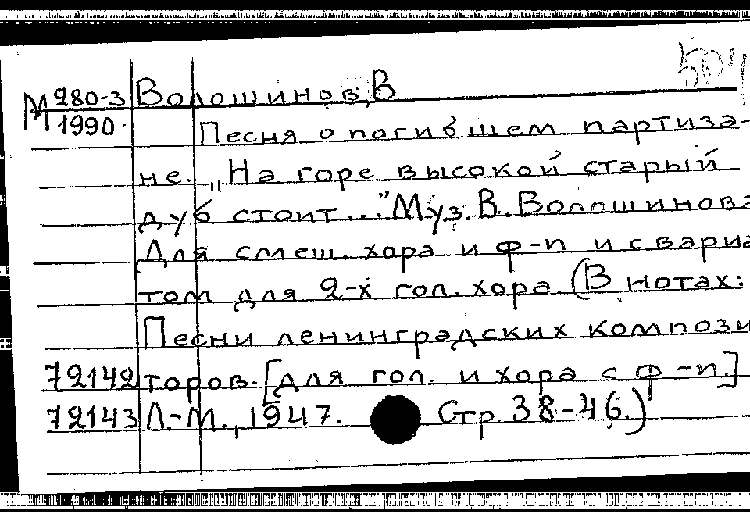 504
М 280-3 Волошинов, В
1990. Песня о погибшем партиза-
не. „На горе высокой старый
дуб стоит..." Муз. В. Волошинова
Для смеш. хора и ф-п и с вариа
том для 2-х гол. хора (В нотах:
Песни ленинградских компози
72142 торов. [Для гол. и хора с ф-п.]
72143 Л.-М., 1947. Стр. 38-46.)